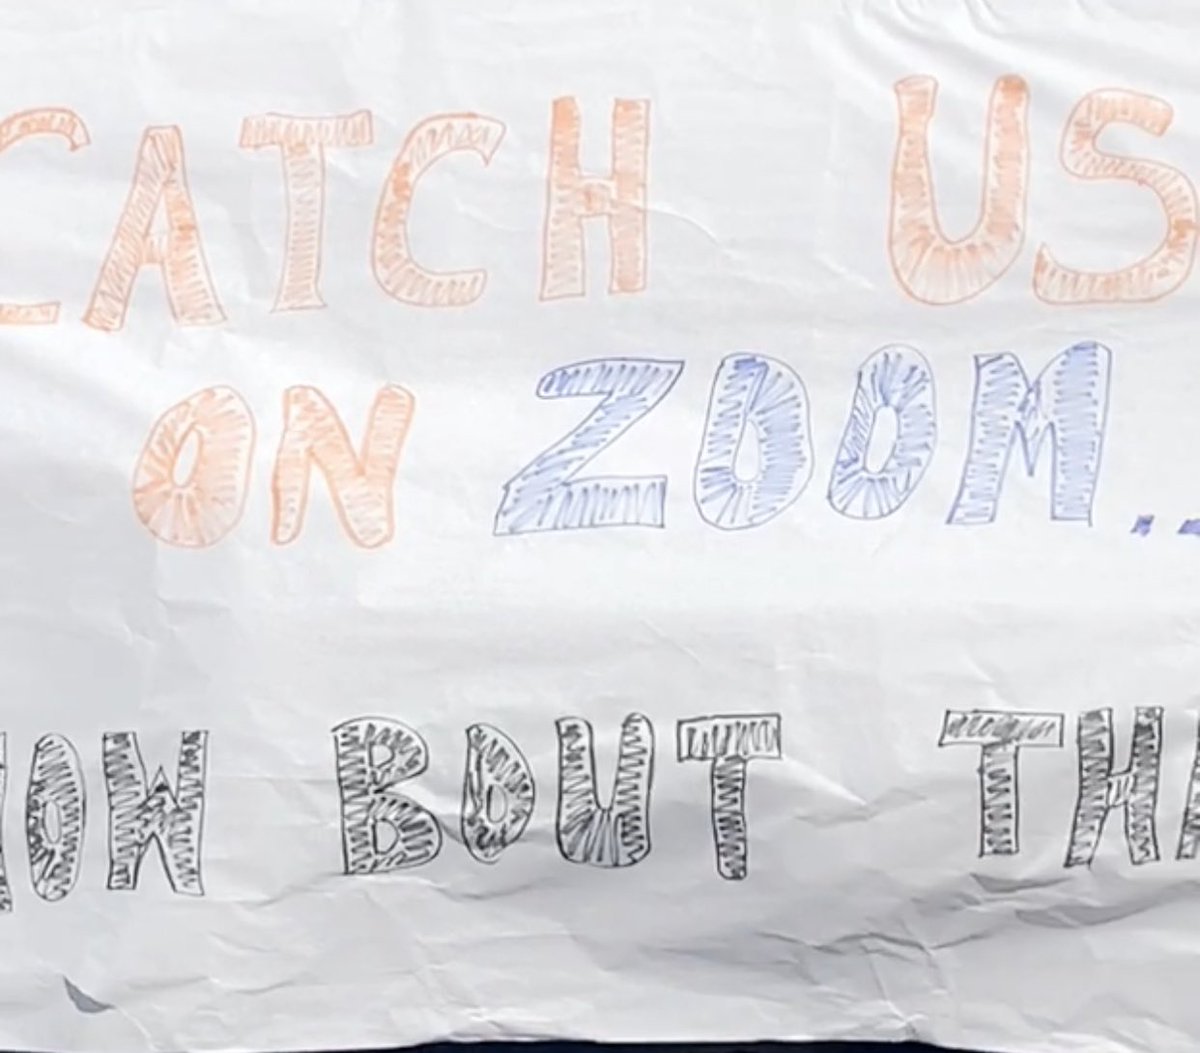 CATCH US
ON ZOOM..
HOW BOUT THA